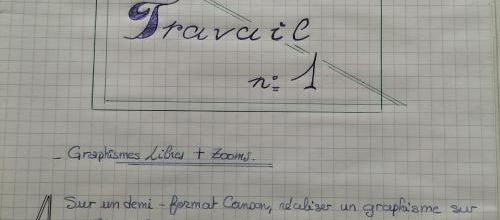 Travail
n: 1
- Graphismes libres + Zooms.
Sur un demi-format Canson, réaliser un graphisme sur